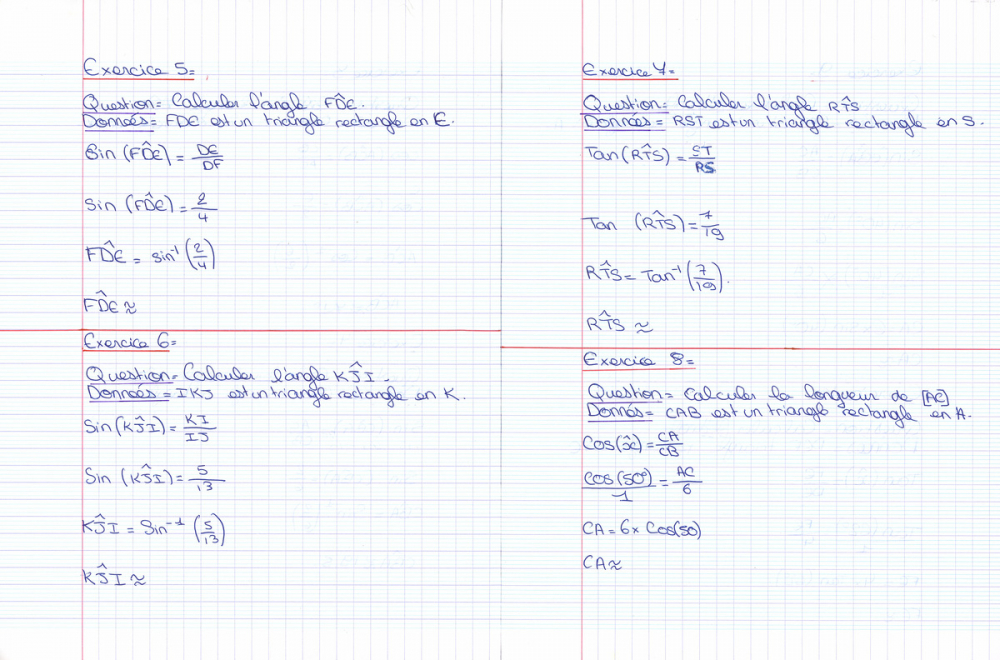 Exercice 5=
Question= Calculer l'angle FD̂E.
Données= FDE est un triangle rectangle en E.
Sin (FD̂E) = DE/DF
Sin (FD̂E) = 2/4
FD̂E = sin⁻¹ (2/4)
FD̂E ≈
Exercice 6=
Question= Calculer l'angle KĴI.
Données = IKJ est un triangle rectangle en K.
Sin (KĴI) = KI/IJ
Sin (KĴI) = 5/13
KĴI = Sin⁻¹ (5/13)
KĴI ≈
Exercice 7=
Question= Calculer l'angle RT̂S
Données= RST est un triangle rectangle en S.
Tan (RT̂S) = ST/RS
Tan (RT̂S) = 7/19
RT̂S = Tan⁻¹ (7/19).
RT̂S ≈
Exercice 8=
Question= Calculer la longueur de [AC]
Donnés= CAB est un triangle rectangle en A.
Cos(x̂) = CA/CB
Cos(50°)/1 = AC/6
CA = 6 × Cos(50)
CA ≈